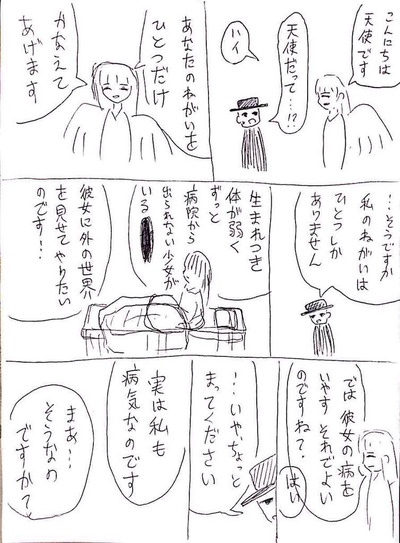 こんにちは
天使です
天使だって…!?
ハイ
あなたのねがいを
ひとつだけ
かなえて
あげます
…そうですか
私のねがいは
ひとつしか
ありません
生まれつき
体が弱く
ずっと
病院から
出られない少女が
いる
彼女に外の世界
を見せてやりたい
のです!…
では彼女の病を
いやす それでよい
のですね?
はい
…いや、ちょっと
まってください
実は私も
病気なのです
まあ…
そうなの
ですか?